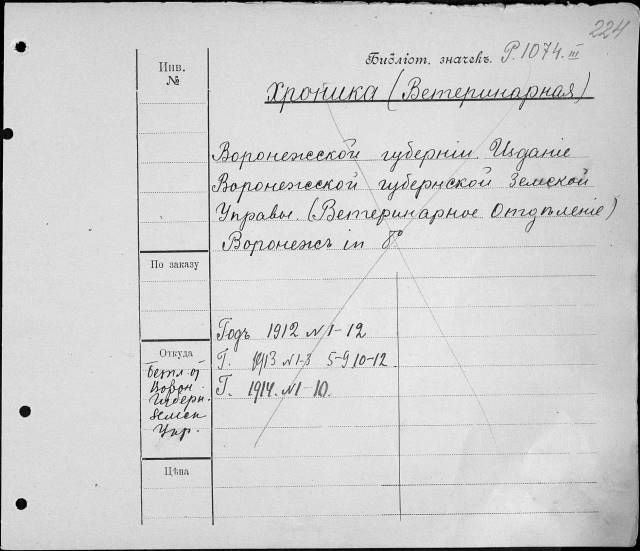 224
Библіот. значекъ. Р. 1074. III
Инв.
№
Хроника (Ветеринарная)
Воронежской губерніи. Изданіе
Воронежской губернской Земской
Управы. (Ветеринарное Отдѣленіе)
Воронежъ in 8°
По заказу
Годъ 1912 N 1-12
Откуда
Г. 1913 N 1-3 5-9 10-12.
Г. 1914. N 1-10.
Губерн.
Земск
Упр.
Цѣна